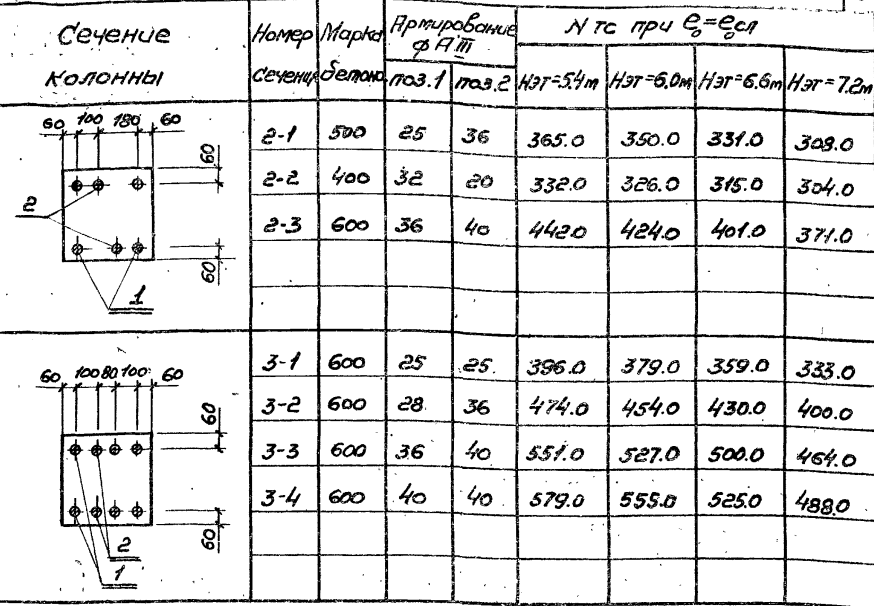 Сечение колонны | Номер сечения | Марка бетона | Армирование ф А III | N тс при e₀=e₀сл
поз.1 | поз.2 | Нэт=5.4м | Нэт=6.0м | Нэт=6.6м | Нэт=7.2м
60 100 180 60
60
2
60
1
2-1 500 25 36 365.0 350.0 331.0 308.0
2-2 400 32 20 332.0 326.0 315.0 304.0
2-3 600 36 40 442.0 424.0 401.0 371.0
60 100 80 100 60
60
60
2
1
3-1 600 25 25 396.0 379.0 359.0 333.0
3-2 600 28 36 474.0 454.0 430.0 400.0
3-3 600 36 40 551.0 527.0 500.0 464.0
3-4 600 40 40 579.0 555.0 525.0 488.0